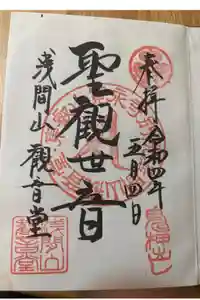 奉拝 令和四年
五月四日
聖観世音
浅間山 観音堂